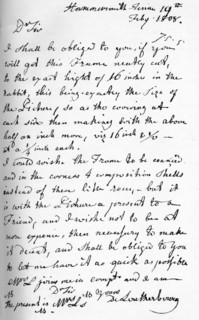 Hammersmith Terrace 19th
Feby. 1808.
Dr Sir
I shall be obliged to you, if you
will get this Frame neatly cut,
to the exact hight of 16 inches in the
rabbit, this being exactly the Size of
the Picture, so as the covering at
each side then making with the above
half an inch more, viz 16 inch &
a ½ inch each.
I could wish the Frame to be
and in the corners 4 composition Shells
instead of them like roses, but it
is with the Picture a present to a
Friend, and I wish not to be at
more expence, then necessary to make
it decent, and shall be obliged to you
to let me have it as quick as possible
Mrs L joins me in compts and I am
Dr Sir
yours
the present is Mrs L's
De Loutherbourg